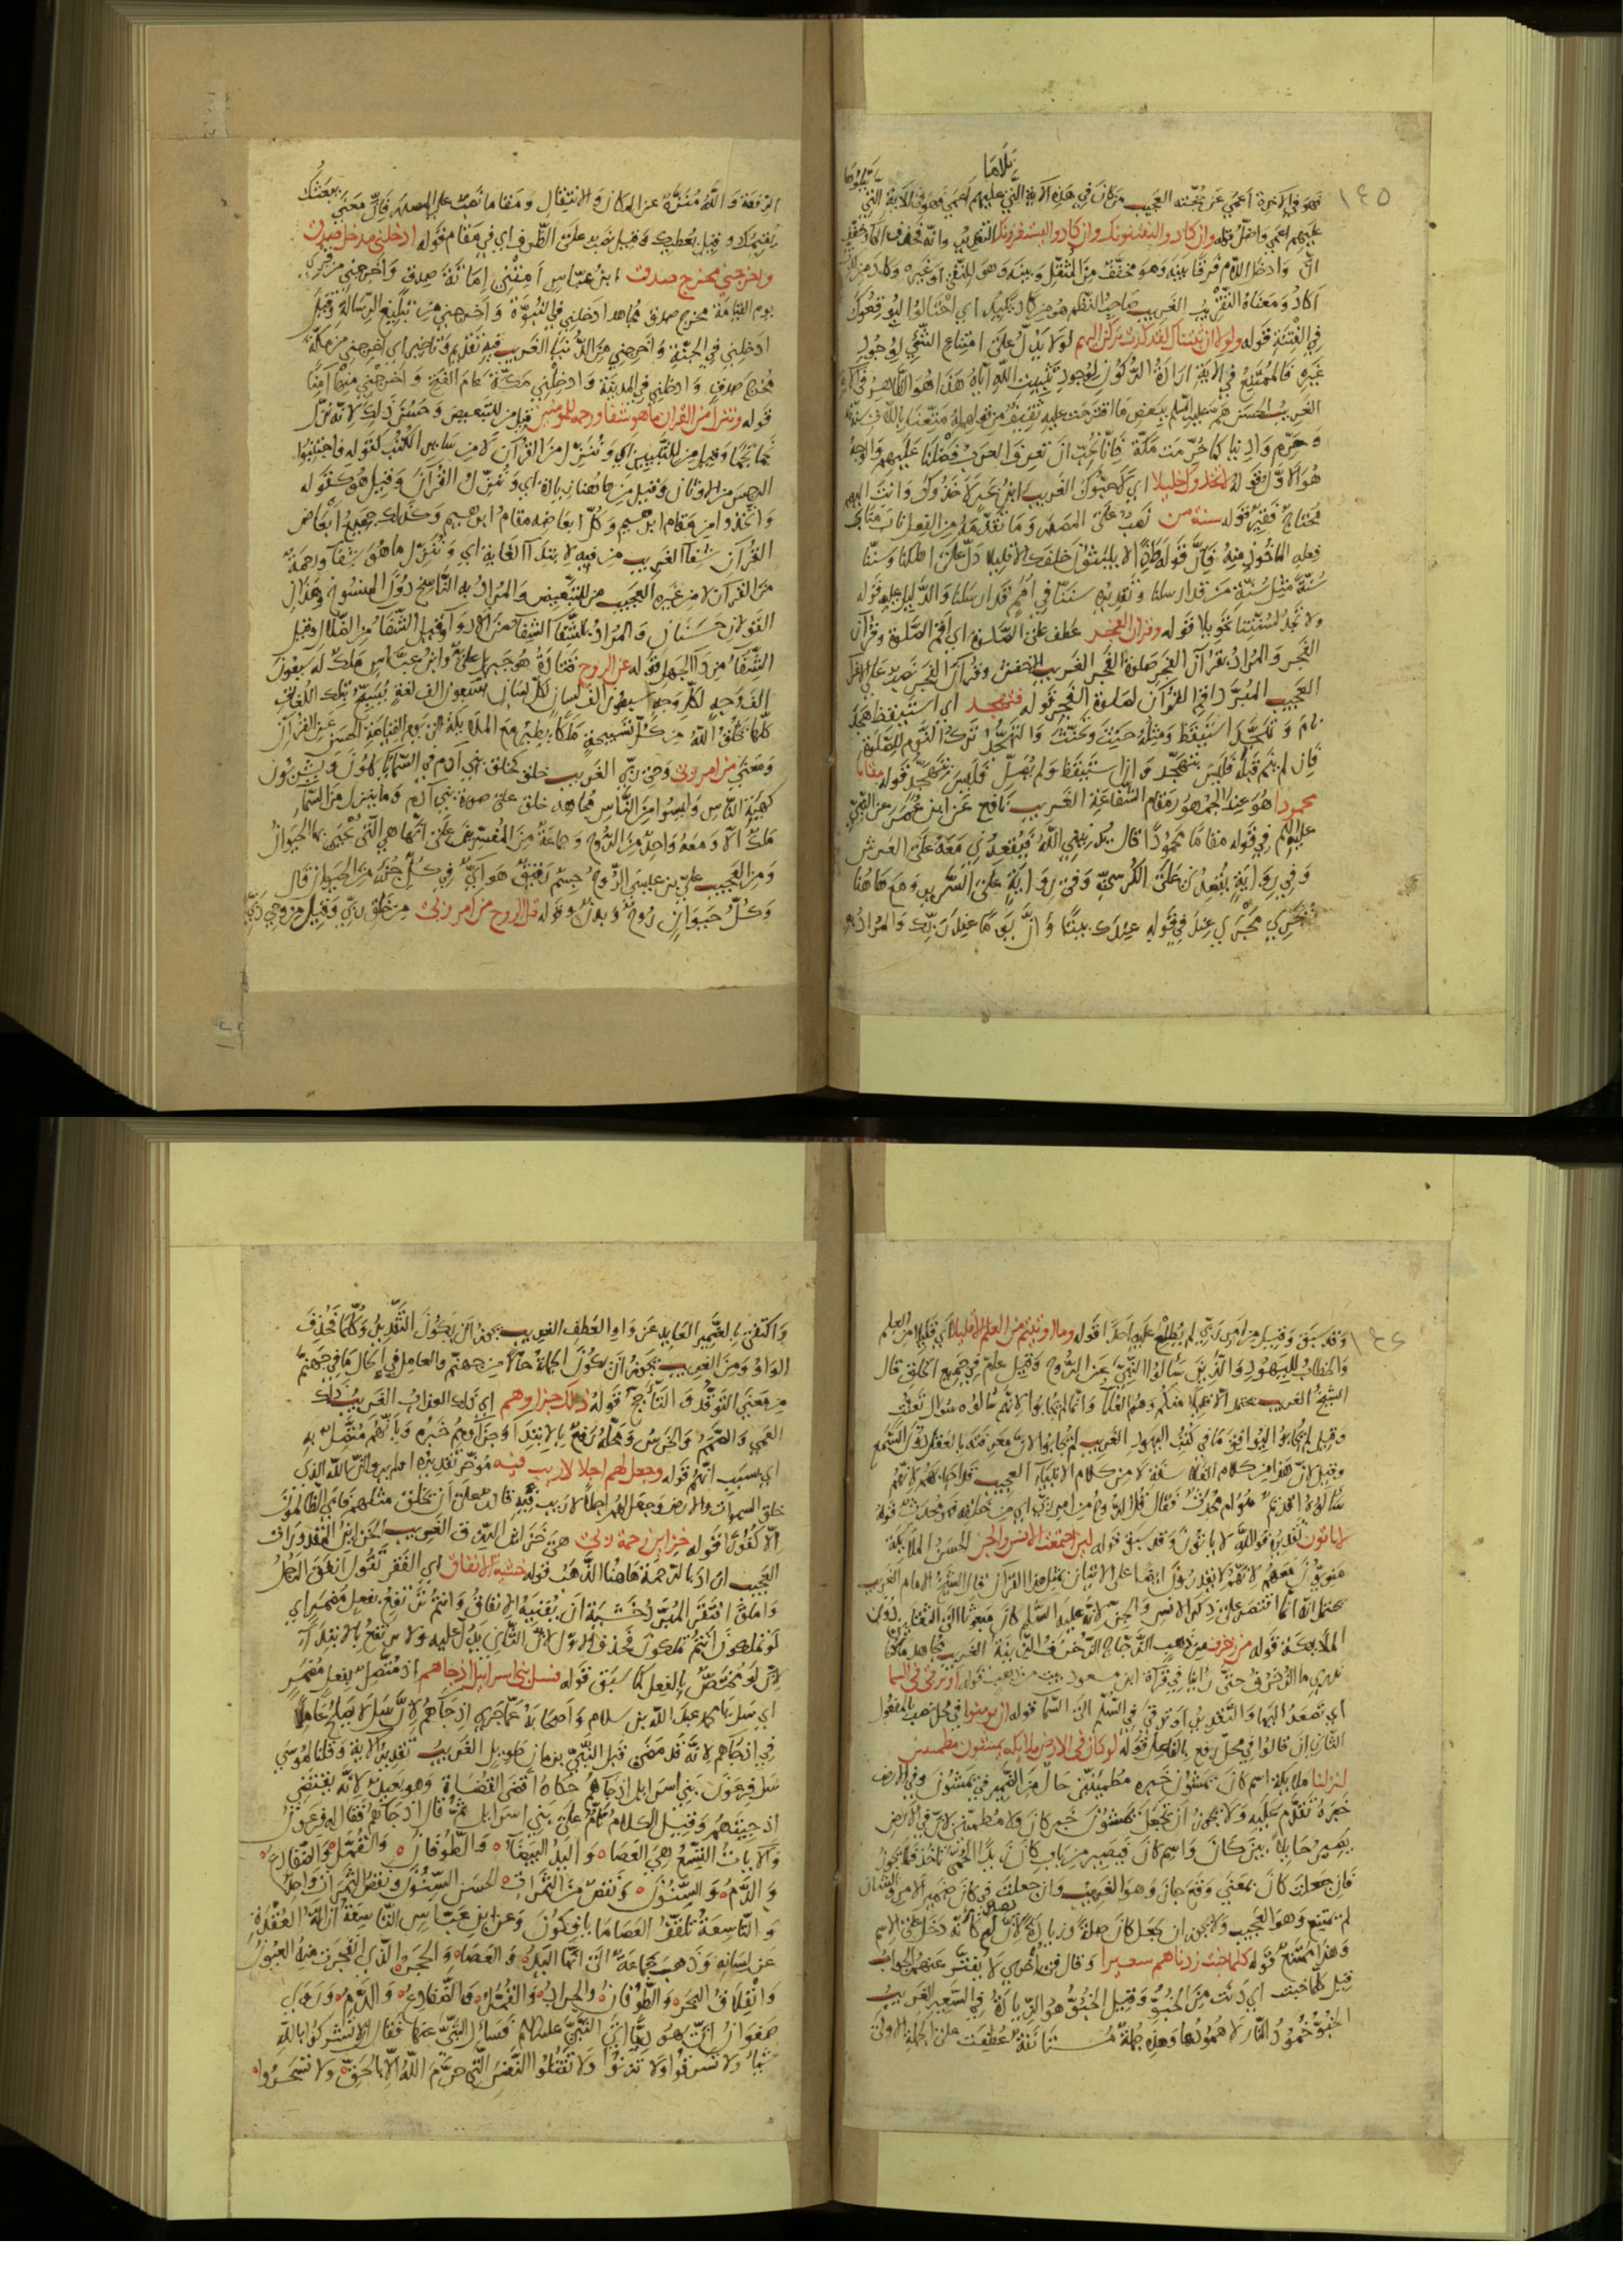 ١٤٥
فهو في الاخرة اعمى عن حجته العجيب من كان في هذه الاية التي عليهم اعمى فهو في الاية التي
عليهم اعمى واضل قوله وان كادوا ليفتنونك وان كادوا ليستفزونك التقدير وانه فخفف
ان وادخل اللام فرقا بينه وهو مخفف من المثقل وبينه وهو للنفي او غيره وكاد من
اكاد ومعناه التقريب الغريب صاحب النظم هو من كاد يكيد اي احتالوا ليوقعوك
في الفتنة قوله ولولا ان ثبتناك لقد كدت تركن اليهم لولا يدل على امتناع الشيء لوجود
غيره فالممتنع في الاية ارادة الركون لوجود تثبيت الله اياه هذا هو الظاهر
الغريب الحسن هم عليه السلم ببعض ما اقترحت عليه ثقيف من قولهم له متعنا باللات سنة
وحرم وادينا كما حرمت مكة فانا نحب ان تعرف العرب فضلنا عليهم والوجه
هو الاول قوله لاتخذوك خليلا اي لاحبوك الغريب ابن بحر لاخذوك وانت اليهم
محتاج فقير قوله سنة من نصب على المصدر وما تقدمه من الفعل ناب مناب
فعله الماخوذ منه فان قوله واذا لا يلبثون خلفك الا قليلا دل على اهلكنا وسننا
سنة مثل سنة من قد ارسلنا وتقديره سنتنا في امم قد ارسلنا والدليل عليه قوله
ولا تجد لسنتنا تحويلا قوله وقران الفجر عطف على الصلوة اي اقم الصلوة وقرآن
الفجر والمراد بقرآن الفجر صلوة الفجر الغريب الاخفش وقرآن الفجر نصب على الاغراء
العجيب المبرد اقرا القرآن لصلوة الفجر قوله فتهجد اي استيقظ هجد
نام وتهجد استيقظ ومثله حنث وتحنث والتهجد ترك النوم للصلوة
فان لم ينم قبله فليس بتهجد وان استيقظ ولم يصل فليس بتهجد قوله مقاما
محمودا هو عند الجمهور مقام الشفاعة الغريب نافع عن ابن عمر عن النبي
عليه السلم في قوله مقاما محمودا قال يدنيني الله فيقعدني معه على العرش
وفي رواية يقعدني على الكرسي وفي رواية على السرير ومع هاهنا
تجري مجرى عند في قوله عندك بيتا وان له عندنا والمراد به
الرفعة والله منزه عن المكان والانتقال ومقاما نصب على المصدر فان معنى يبعثك
يقيمك وقيل يعطيك وقيل نصب على الظرف اي في مقام قوله ادخلني مدخل صدق
واخرجني مخرج صدق ابن عباس امتني اماتة صدق واخرجني من قبري
يوم القيامة مخرج صدق مجاهد ادخلني في النبوة واخرجني من تبليغ الرسالة وقيل
ادخلني في الجنة واخرجني من الدنيا الغريب فيه تقديم وتاخير اي اخرجني من مكة
مخرج صدق وادخلني في المدينة وادخلني مكة عام الفتح واخرجني منها آمنا
قوله وننزل من القران ما هو شفا ورحمة للمومنين قيل من للتبعيض وحسن ذلك لانه نزل
نجما نجما وقيل من للتبيين اي وننزل من القرآن لا من سائر الكتب كقوله فاجتنبوا
الرجس من الاوثان وقيل من هاهنا زيادة اي وننزل القرآن وقيل هو كقوله
واتخذوا من مقام ابرهيم وكل ابعاضه مقام ابرهيم وكذلك جميع ابعاض
القرآن شفاء الغريب من فيه لابتداء الغاية اي وننزل ما هو شفاء ورحمة
من القرآن لا من غيره العجيب من للتبعيض والمراد به الناسخ دون المنسوخ وهذان
القولان حسنان والمراد بالشفاء الشفاء من الادواء وقيل الشفاء من الضلال وقيل
الشفاء من داء الجهل قوله عن الروح قتادة هو جبريل علي وابن عباس ملك له سبعون
الف وجه لكل وجه سبعون الف لسان لكل لسان سبعون الف لغة يسبح بتلك اللغات
كلها يخلق الله من كل تسبيحة ملكا يطير مع الملايكة الى يوم القيامة الحسن عن القرآن
ومعنى من امر ربي وحي ربي الغريب خلق كخلق بني آدم في السماء ياكلون ويشربون
كهيئة الناس وليسوا من الناس مجاهد خلق على صورة بني آدم وما ينزل من السماء
ملك الا ومعه واحد من الروح وجماعة من المفسرين على انها هي التي يحيى بها الحيوان
ومن العجيب علي بن عيسى الروح جسم رقيق هوائي في كل جزء من الحيوان قال
وكل حيوان روح وبدن وقوله قل الروح من امر ربي من خلق ربي وقيل من وحي ربي
١٤٦
وقد سبق وقيل من امر ربي لم يطلع عليه احدا قوله وما اوتيتم من العلم الا قليلا اي قليلا من العلم
والخطاب لليهود والذين سالوا النبي عن الروح وقيل عام في جميع الخلق قال
الشيخ الغريب يحتمل الا قليلا منكم وهم العلماء وانما لم يجابوا لانهم سالوه سوال تعنت
وقيل لم يجابوا ليوافق ما في كتب اليهود الغريب لم يجابوا لان معرفته بالعقل دون السمع
وقيل لان هذا من كلام الفلاسفة لا من كلام الانبياء العجيب قد اجابهم لانهم
سالوه اقديم هو ام محدث فقال قل الروح من امر ربي اي من خلقه فهو محدث قوله
لا ياتون تقديره فوالله لا ياتون وقد سبق قوله لين اجتمعت الانس والجن الحسن الملايكة
فريق معهم لانهم لا يقدرون ايضا على الاتيان بمثل هذا القرآن قال الشيخ الامام الغريب
يحتمل انه انما اقتصر على ذكر الانس والجن لانه عليه السلم كان مبعوثا الى الثقلين دون
الملايكة قوله من زخرف من ذهب الزجاج الزخرف الزينة الغريب مجاهد ما كنا
ندري ما الزخرف حتى راينا في قراة ابن مسعود بيت من ذهب قوله او ترقى في السما
اي تصعد اليها والتقدير او ترقى في السلم الى السما قوله ان يومنوا في محل نصب بالمفعول
الثاني ان قالوا في محل رفع بالفاعل قوله لو كان في الارض ملايكة يمشون مطمينين
لنزلنا ملايكة اسم كان يمشون خبره مطمئنين حال من الضمير في يمشون وفي الارض
خبره تقدم عليه ولا يجوز ان تجعل يمشون خبر كان ولا مطمئنين لان في الارض
يصير حايلا بين كان واسم كان فيصير من باب كان زيدا الحمى تاخذ فلا يجوز
فان جعلت كان بمعنى وقع جاز وهو الغريب وان جعلت في كان ضمير الامر والشان
لم يمتنع وهو العجيب ولا يجوز ان يجعل كان صلة وزيادة لان لو كانه دخل على الاسم
وهذا ممتنع قوله كلما خبت زدناهم سعيرا وقال في اخرى لا يفتر عنهم الجواب
قيل كلما خبت اي دنت من الخبو وقيل الخبو هو الزيادة في السعير الغريب
الخبو خمود النار لا همودها وهذه جملة مستانفة عطفت على الجملة الاولى
واكتفي بالضمير العايد عن واو العطف الغريب يجوز ان يكون التقدير وكلما فحذف
الواو ومن الغريب يجوز ان يكون الجملة حالا من جهنم والعامل في الحال ما في جهنم
من معنى التوقد والتاجج قوله ذلك جزاوهم اي ذلك العذاب الغريب ذلك
العمى والصمم والخرس ومحله رفع بالابتداء وجزاؤهم خبره وبانهم متصل به
اي بسبب انهم قوله وجعل لهم اجلا لا ريب فيه مؤخر تقديره اولم يروا ان الله الذي
خلق السموات والارض وجعل لهم اجلا لا ريب فيه قادر على ان يخلق مثلهم فابى الظالمون
الا كفورا قوله خزاين رحمة ربي هي خزائن الرزق الغريب الحسن
العجيب اراد بالرحمة هاهنا الذهب قوله خشية الانفاق اي الفقر تقول انفق الرجل
واملق افتقر المبرد خشية ان يفنيه الانفاق وانتم ترتفع بفعل مضمر اي
لو تملكون انتم تملكون فحذف الاول لان الثاني يدل عليه ولا يرتفع بالابتداء
لان لو مختص بالفعل كما سبق قوله فسل بني اسرايل اذ جاهم اذ متصل بفعل مضمر
اي سل يا محمد عبد الله بن سلام واصحابه عما جرى اذ جاءهم لان سل لا يصلح عاملا
في اذ جاهم لانه قد مضى قبل النبي بزمان طويل الغريب تقدير الاية وقلنا لموسى
سل فرعون بني اسرايل اذ جاهم حكاه اقضى القضاة وهو بعيد لانه يقتضي
اذ جيتهم وقيل الكلام تام على بني اسرايل ثم قال اذ جاهم فقال له فرعون
والآيات التسع هي العصا ٥ واليد البيضاء ٥ والطوفان ٥ والقمل ٥ والضفادع ٥
والدم ٥ والسنون ٥ ونقص من الثمرات ٥ الحسن السنون ونقص الثمرات واحد
والتاسعة تلقف العصا ما يافكون وعن ابن عباس التاسعة ازالة العقدة
عن لسانه وذهب جماعة الى انها اليد ٥ والعصا ٥ والحجر ٥ الذي انفجرت منه العيون
وانفلاق البحر ٥ والطوفان ٥ والجراد ٥ والقمل ٥ والضفادع ٥ والدم ٥ وروى
صفوان ان يهوديا اتى النبي عليه السلم فسال النبي عنها فقال لا تشركوا بالله
شيا ولا تسرقوا ولا تزنوا ولا تقتلوا النفس التي حرم الله الا بالحق ٥ ولا تسحروا ٥